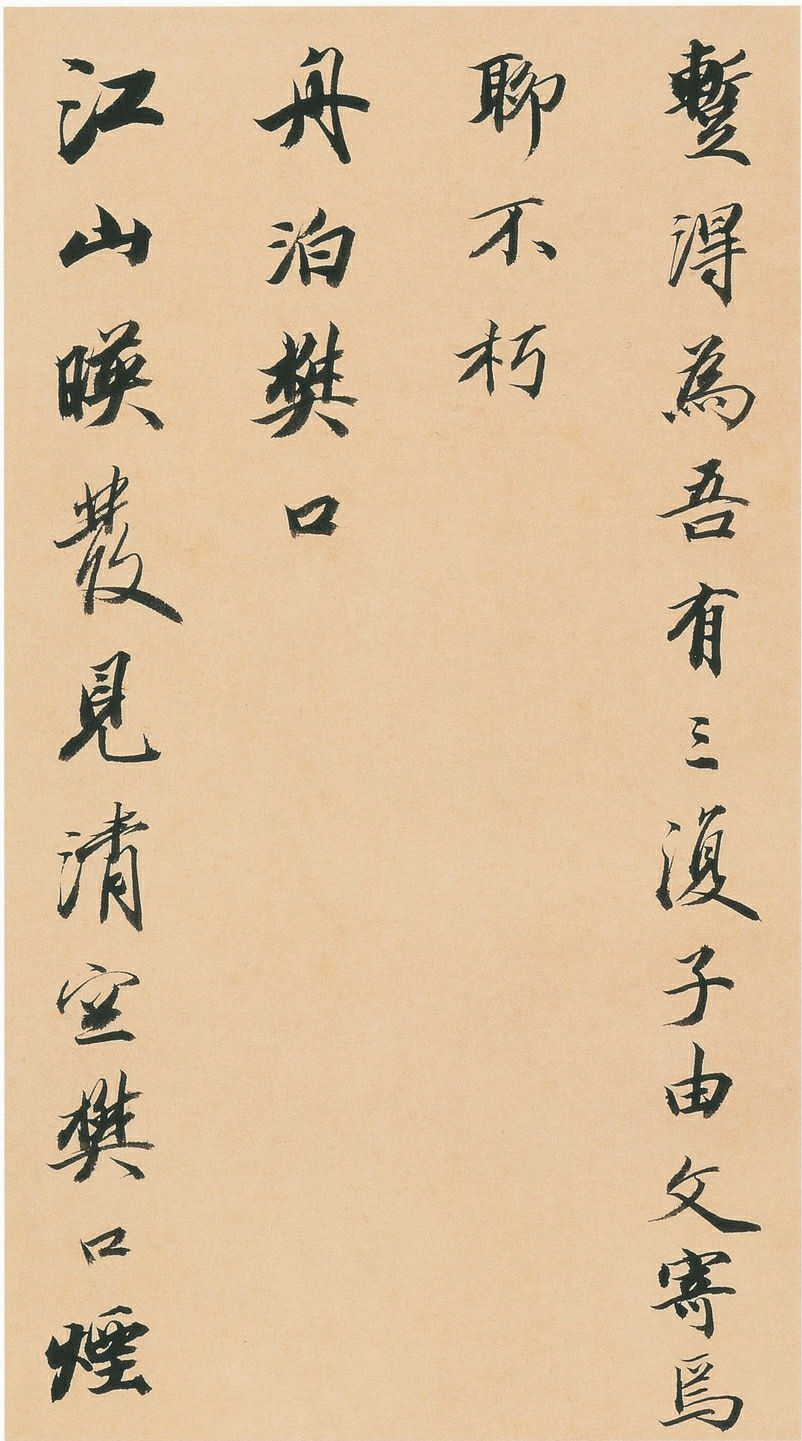 暫得為吾有三復子由文寄焉
聊不朽
舟泊樊口
江山暎發見清空樊口煙